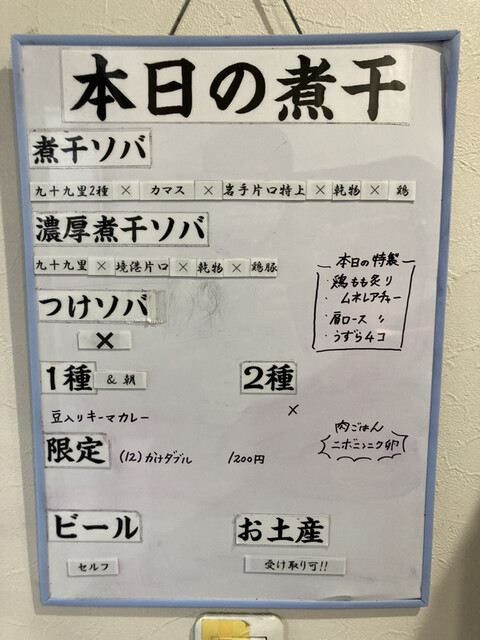 本日の煮干
煮干ソバ
九十九里2種 × カマス × 岩手片口特上 × 乾物 × 鶏
濃厚煮干ソバ
九十九里 × 境港片口 × 乾物 × 鶏豚
本日の特製
・鶏もも炙り
・ムネレアチャー
・肩ロース 〃
・うずら4コ
つけソバ
×
1種 & 朝
豆入りキーマカレー
2種
×
肉ごはん
ニボニンニク卵
限定 (12) かけダブル 1200円
ビール
セルフ
お土産
受け取り可!!